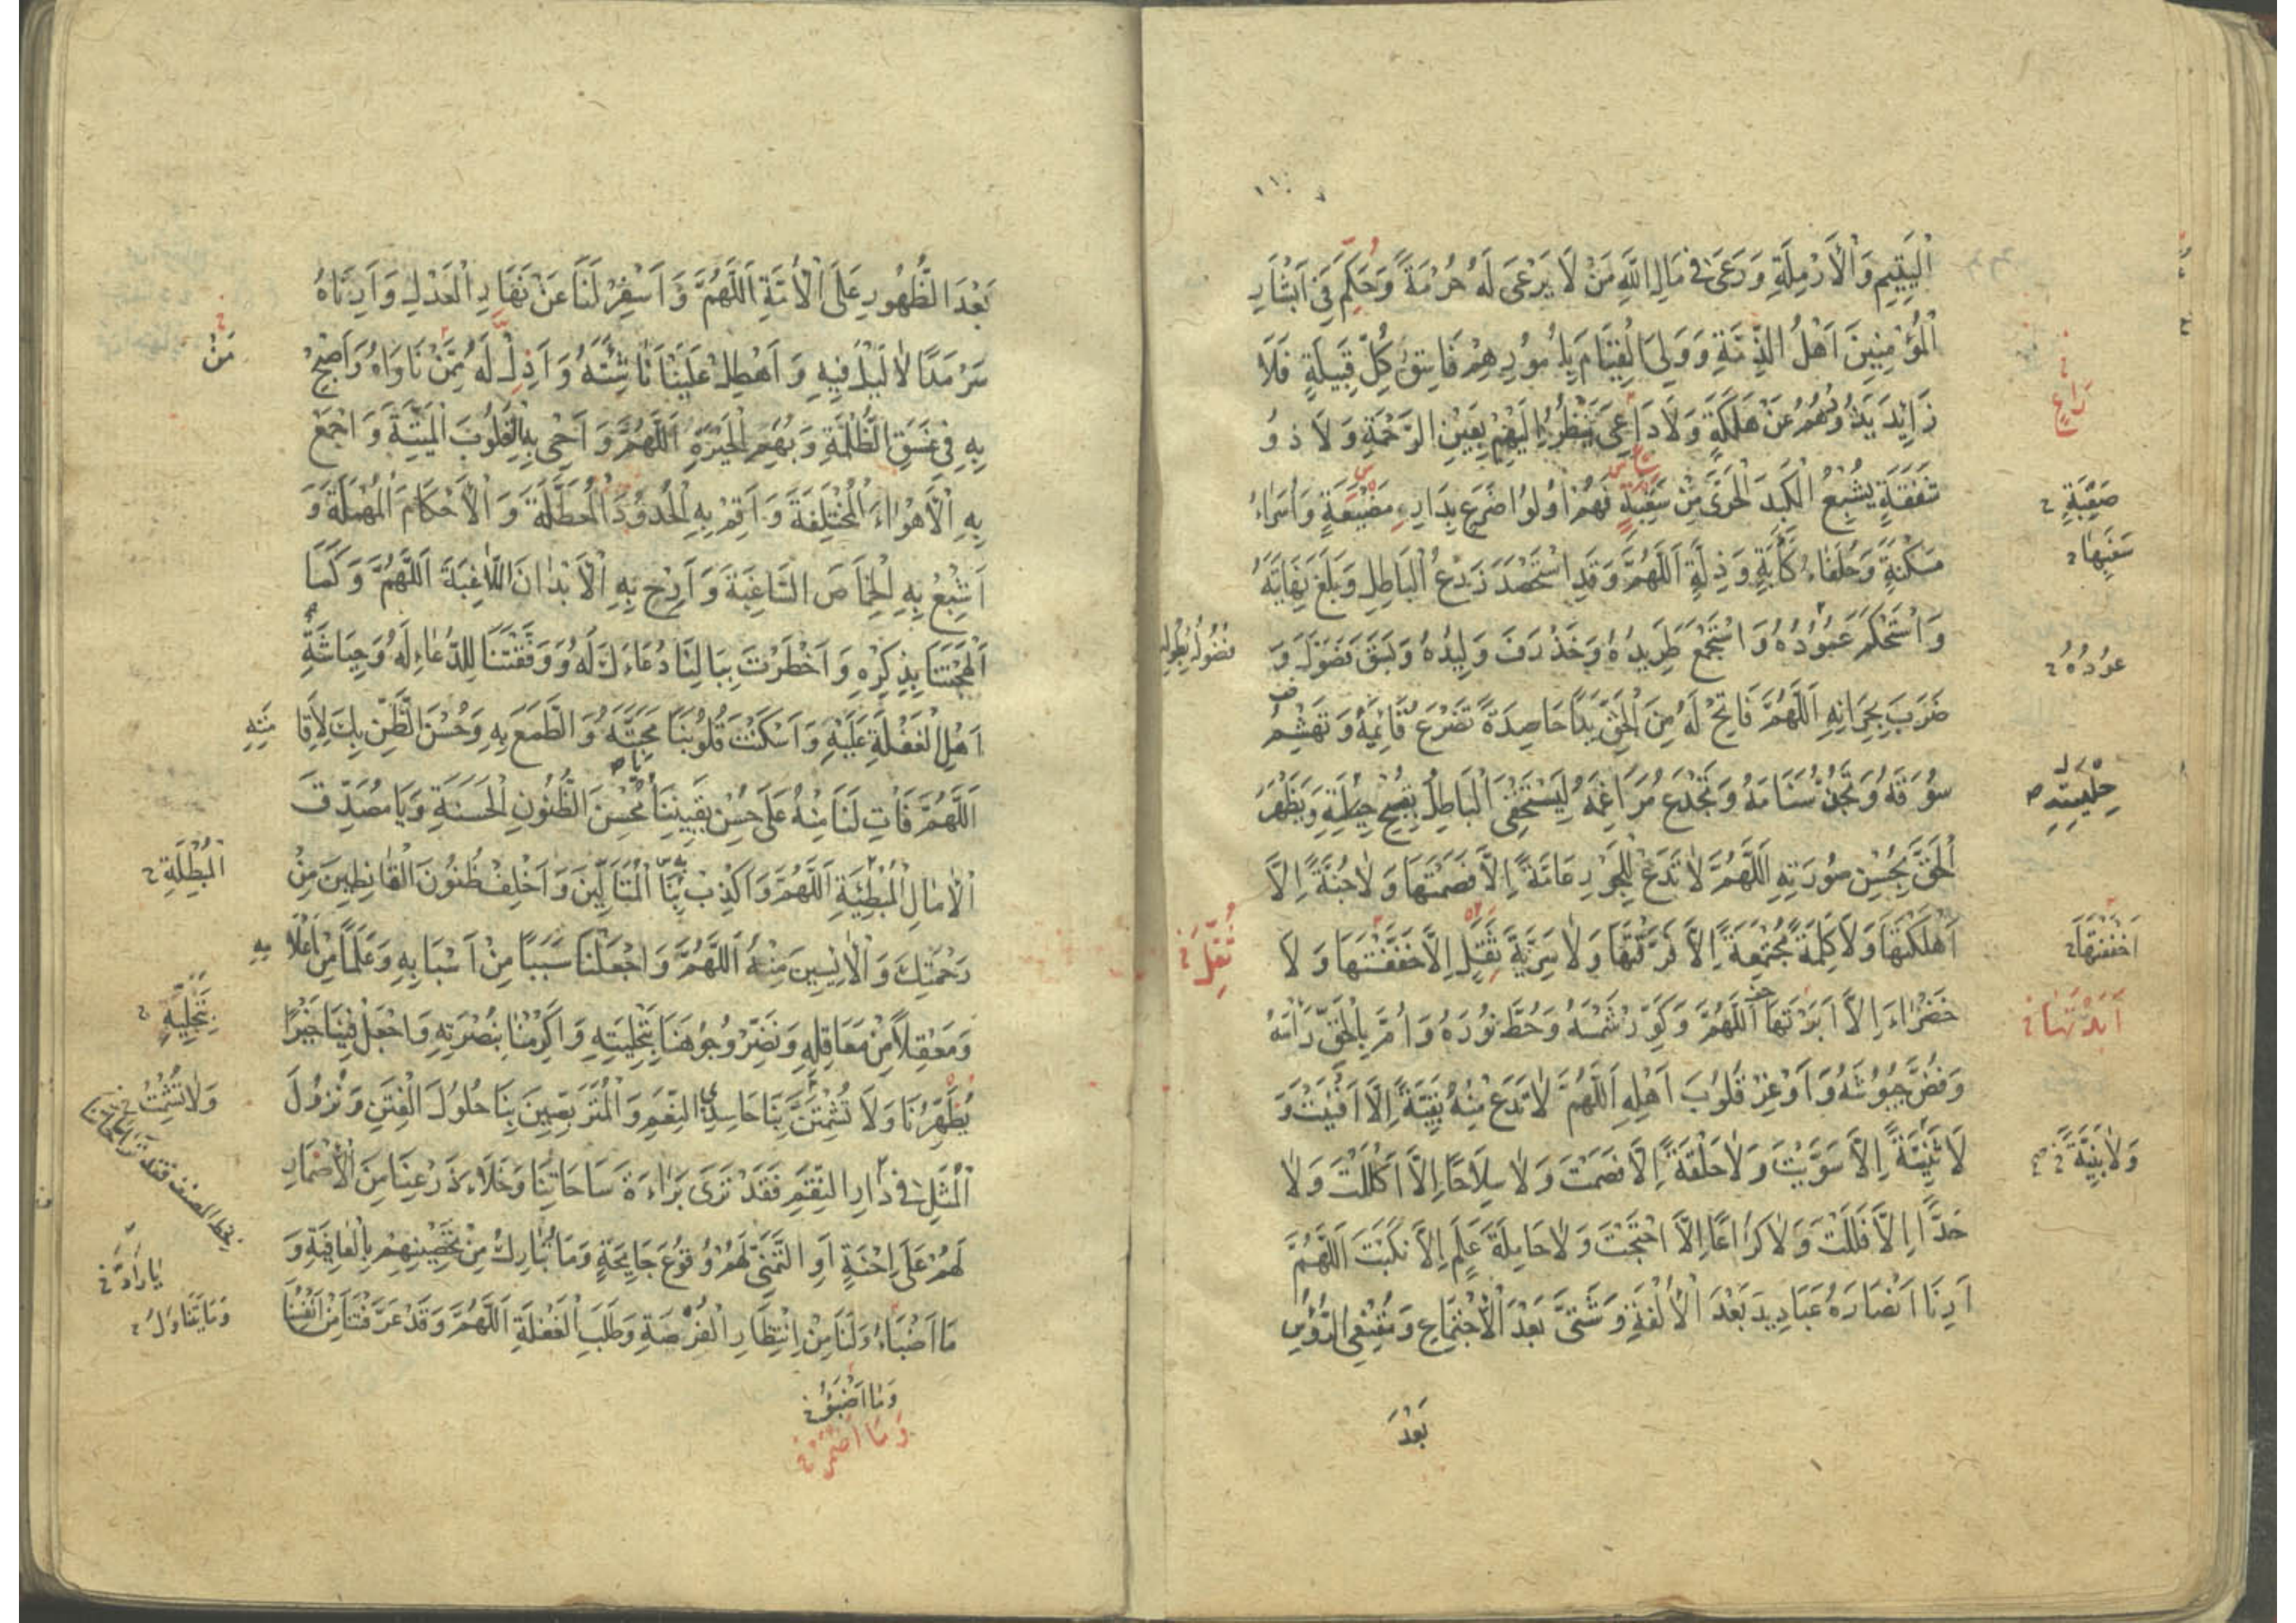 الْيَتِيمِ وَالْأَرْمِلَةِ وَرَعَىٰ فِي مَالِ اللَّهِ مَنْ لَا يَرْعَى لَهُ حُرْمَةً وَحَكَمَ فِي اَبْشَارِ
الْمُؤْمِنِينَ اَهْلُ الذِّمَّةِ وَوَلِيَ الْقِيَامَ بِاُمُورِهِمْ فَاسِقُ كُلِّ قَبِيلَةٍ فَلَا
زَايِدَ يَذُودُهُمْ عَنْ هَلَكَةٍ وَلَا دَاعِيَ يَنْظُرُ اِلَيْهِمْ بِعَيْنِ الرَّحْمَةِ وَلَا ذُو
رَاعٍ
شَفَقَةٍ يُشْبِعُ الْكَبِدَ الْحَرَّى مِنْ سَغَبَةٍ فَهُمْ اُولُوا ضَرَعٍ بِدَارِ مَضْيَعَةٍ وَاُسَرَاءُ
سَغَبِهَا
مَسْكَنَةٍ وَحُلَفَاءُ كَأْبَةٍ وَذِلَّةٍ اَللَّهُمَّ وَقَدِ اسْتَحْصَدَ زَرْعُ الْبَاطِلِ وَبَلَغَ نِهَايَتَهُ
وَاسْتَحْكَمَ عَمُودُهُ وَاسْتَجْمَعَ طَرِيدُهُ وَخَذْرَفَ وَلِيدُهُ وَبَسَقَ فَضُولُهُ وَ
عَوْدُهُ
ضَرَبَ بِجِرَانِهِ اَللَّهُمَّ فَاَتِحْ لَهُ مِنَ الْحَقِّ يَدًا حَاصِدَةً تَصْرَعُ قَائِمَهُ وَتَهْشِمُ
سُوقَهُ وَتَجُذُّ سَنَامَهُ وَتَجْدَعُ مَرَاغِمَهُ لِيَسْتَخْفِيَ الْبَاطِلُ بِقُبْحِ حِلْيَتِهِ وَيَظْهَرَ
حِلْيَتِهِ
الْحَقُّ بِحُسْنِ صُورَتِهِ اَللَّهُمَّ لَا تَدَعْ لِلْجَوْرِ دِعَامَةً اِلَّا قَصَمْتَهَا وَلَا جُنَّةً اِلَّا
اَهْلَكْتَهَا وَلَا كَلِمَةً مُجْتَمِعَةً اِلَّا فَرَّقْتَهَا وَلَا سَرِيَّةَ ثِقْلٍ اِلَّا خَفَّفْتَهَا وَلَا
خَضْرَاءَ اِلَّا اَبَرْتَهَا اَللَّهُمَّ وَكَوِّرْ شَمْسَهُ وَحُطَّ نُورَهُ وَاُمَّ بِالْحَقِّ رَأْسَهُ
وَفُضَّ جُيُوشَهُ وَاَوْعِرْ قُلُوبَ اَهْلِهِ اَللَّهُمَّ لَا تَدَعْ مِنْهُ بَقِيَّةً اِلَّا اَفْنَيْتَ وَ
لَا بَنِيَّةً اِلَّا سَوَّيْتَ وَلَا حَلْقَةً اِلَّا فَصَمْتَ وَلَا سِلَاحًا اِلَّا اَكْلَلْتَ وَلَا
وَلَا بَنِيَّةً
حَدًّا اِلَّا فَلَلْتَ وَلَا كُرَاعًا اِلَّا اجْتَحْتَ وَلَا حَامِلَةَ عَلَمٍ اِلَّا نَكَّبْتَ اَللَّهُمَّ
اَرِنَا اَنْصَارَهُ عَبَادِيدَ بَعْدَ الْاُلْفَةِ وَشَتَّى بَعْدَ الْاِجْتِمَاعِ وَمُقْنِعِي الرُّؤُسِ
بَعْدَ
بَعْدَ الظُّهُورِ عَلَى الْاُمَّةِ اَللَّهُمَّ وَاَسْفِرْ لَنَا عَنْ نَهَارِ الْعَدْلِ وَاَرِنَاهُ
سَرْمَدًا لَا لَيْلَ فِيهِ وَاَهْطِلْ عَلَيْنَا نَاشِئَتَهُ وَاَدِلْ لَهُ مِمَّنْ نَاوَاهُ وَاَصْبِحْ
مَنْ
بِهِ فِي غَسَقِ الظُّلْمَةِ وَبُهَمِ الْحَيْرَةِ اَللَّهُمَّ وَاَحْيِ بِهِ الْقُلُوبَ الْمَيِّتَةَ وَاجْمَعْ
بِهِ الْاَهْوَاءَ الْمُخْتَلِفَةَ وَاَقِمْ بِهِ الْحُدُودَ الْمُعَطَّلَةَ وَالْاَحْكَامَ الْمُهْمَلَةَ وَ
اَشْبِعْ بِهِ الْخِمَاصَ السَّاغِبَةَ وَاَرِحْ بِهِ الْاَبْدَانَ اللَّاغِبَةَ اَللَّهُمَّ وَكَمَا
اَلْهَجْتَنَا بِذِكْرِهِ وَاَخْطَرْتَ بِبَالِنَا دُعَاءَكَ لَهُ وَوَفَّقْتَنَا لِلدُّعَاءِ لَهُ وَحِيَاشَةِ
اَهْلِ الْغَفْلَةِ عَلَيْهِ وَاَسْكَنْتَ قُلُوبَنَا مَحَبَّتَهُ وَالطَّمَعَ بِهِ وَحُسْنَ الظَّنِّ بِكَ لِاِقَا
مَتِهِ
اَللَّهُمَّ فَاْتِ لَنَا مِنْهُ عَلَى حُسْنِ يَقِينِنَا يَا مُحْسِنَ الظُّنُونِ الْحَسَنَةِ وَيَا مُصَدِّقَ
الْاٰمَالِ الْمُبْطِئَةِ اَللَّهُمَّ وَاَكْذِبْ بِهِ الْمُتَأَلِّينَ وَاَخْلِفْ ظُنُونَ الْقَانِطِينَ مِنْ
رَحْمَتِكَ وَالْاٰيِسِينَ مِنْهُ اَللَّهُمَّ وَاجْعَلْنَا سَبَبًا مِنْ اَسْبَابِهِ وَعَلَمًا مِنْ اَعْلَا
مِهِ
وَمَعْقِلًا مِنْ مَعَاقِلِهِ وَنَضِّرْ وُجُوهَنَا بِتَحْلِيَتِهِ وَاَكْرِمْنَا بِنُصْرَتِهِ وَاجْعَلْ فِينَا خَيْرًا
يُظْهِرُنَا وَلَا تُشْمِتَنَّ بِنَا حَاسِدِي النِّعَمِ وَالْمُتَرَبِّصِينَ بِنَا حُلُولَ الْفِتَنِ وَنُزُولَ
وَلَا تُشْمِتْ
الْمُثُلِ فِي دَارِ النِّقَمِ فَقَدْ تَرَى بَرَاءَةَ سَاحَاتِنَا وَخَلَاءَ ذَرْعِنَا مِنَ الْاِضْمَارِ
لَهُمْ عَلَى اِحْنَةٍ اَوِ التَّمَنِّي لَهُمْ وُقُوعَ جَايِحَةٍ وَمَا تُبَارِكُ مِنْ تَحْصِينِهِمْ بِالْعَافِيَةِ وَ
مَا اَضْبَاءُ وَلَنَا مِنْ اِنْتِظَارِ الْفُرْصَةِ وَطَلَبِ الْغَفْلَةِ اَللَّهُمَّ وَقَدْ عَرَّفْتَنَا مِنْ اَنْفُسِنَا
وَمَا اَضْبَؤُا